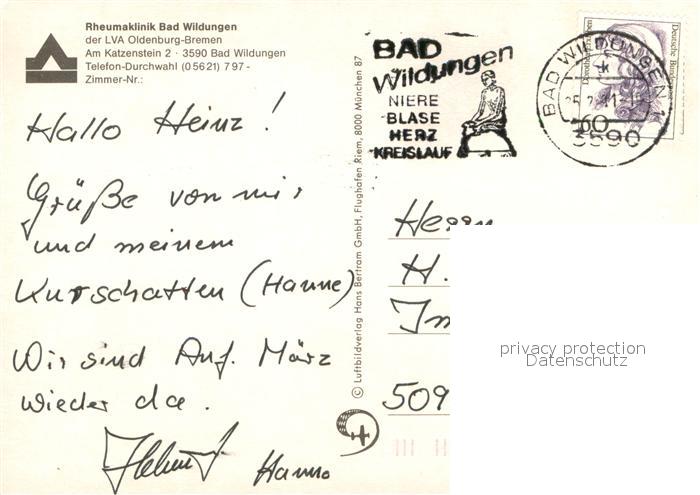 Rheumaklinik Bad Wildungen
der LVA Oldenburg-Bremen
Am Katzenstein 2 · 3590 Bad Wildungen
Telefon-Durchwahl (0 56 21) 7 97 -
Zimmer-Nr.:
BAD
Wildungen
NIERE
BLASE
HERZ
KREISLAUF
BAD WILDUNGEN 1
3590
60
Deutsche Bundespost
Hallo Heinz!
Grüße von mir
und meinem
Kurschatten (Hanne)
Wir sind Anf. März
wieder da.
Helmut Hanne
© Luftbildverlag Hans Bertram GmbH, Flughafen Riem, 8000 München 87
Herrn
H.
Im
509
privacy protection
Datenschutz